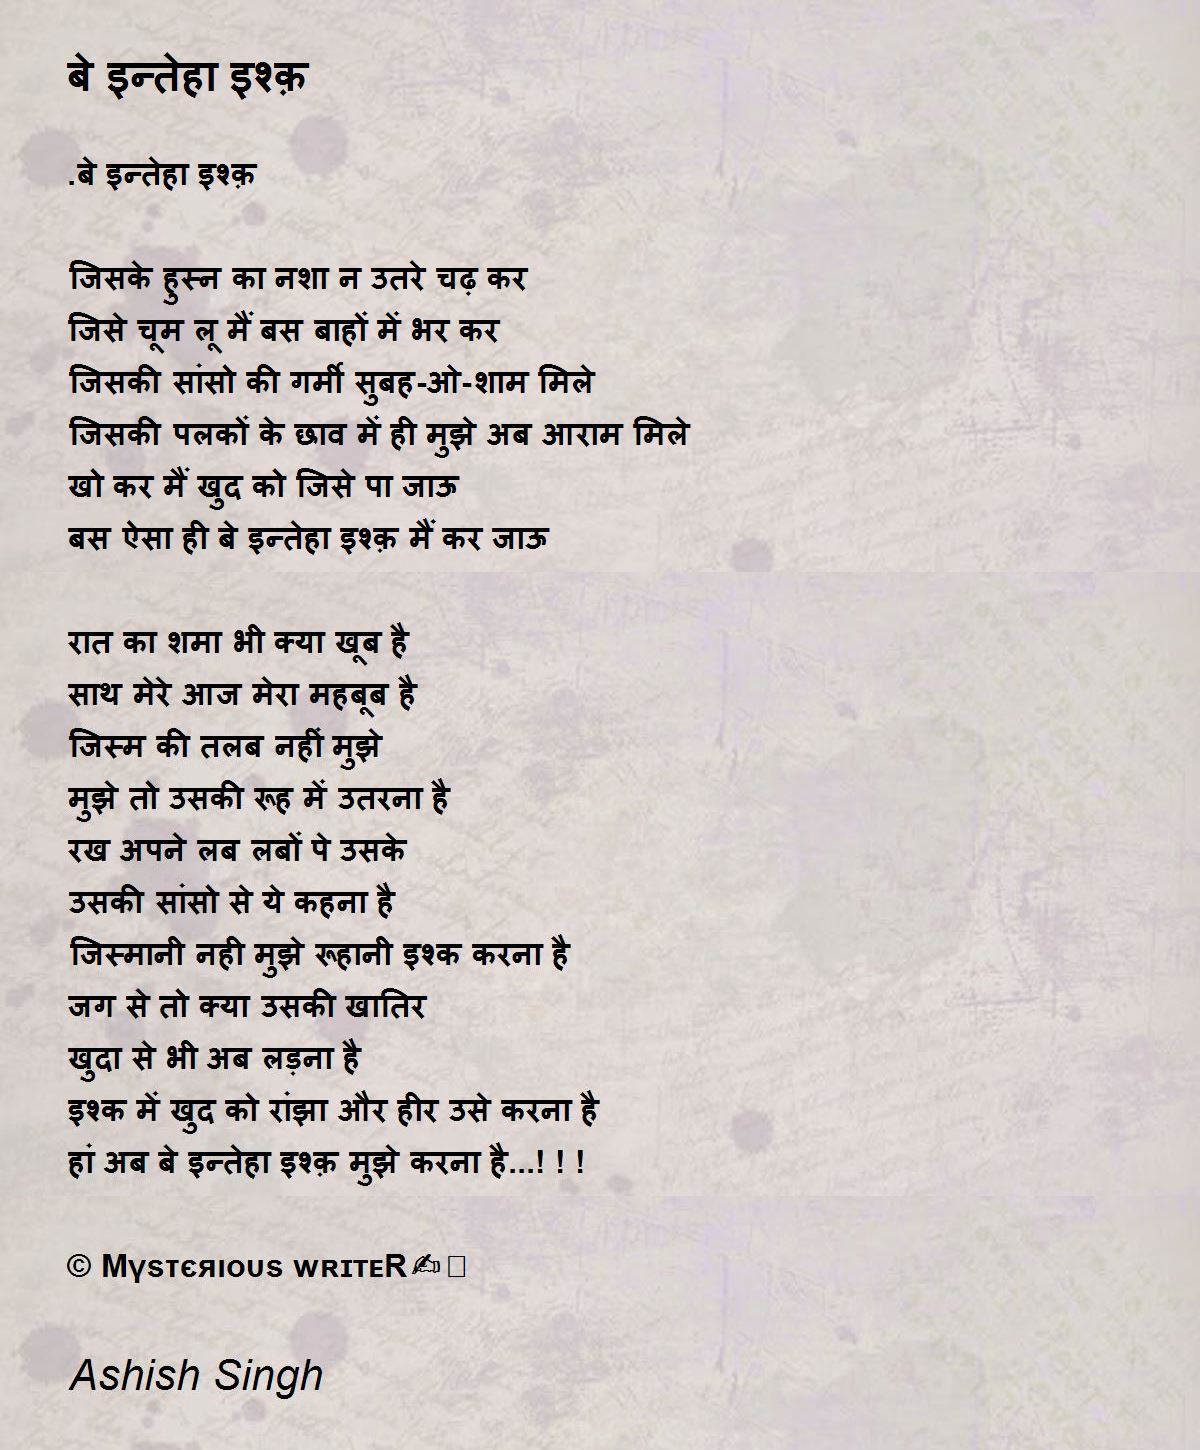 बे इन्तेहा इश्क़
.बे इन्तेहा इश्क़
जिसके हुस्न का नशा न उतरे चढ़ कर
जिसे चूम लू मैं बस बाहों में भर कर
जिसकी सांसो की गर्मी सुबह-ओ-शाम मिले
जिसकी पलकों के छाव में ही मुझे अब आराम मिले
खो कर मैं खुद को जिसे पा जाऊ
बस ऐसा ही बे इन्तेहा इश्क़ मैं कर जाऊ
रात का शमा भी क्या खूब है
साथ मेरे आज मेरा महबूब है
जिस्म की तलब नहीं मुझे
मुझे तो उसकी रूह में उतरना है
रख अपने लब लबों पे उसके
उसकी सांसो से ये कहना है
जिस्मानी नही मुझे रूहानी इश्क करना है
जग से तो क्या उसकी खातिर
खुदा से भी अब लड़ना है
इश्क में खुद को रांझा और हीर उसे करना है
हां अब बे इन्तेहा इश्क़ मुझे करना है...! ! !
© Mүsтєяıoυs wʀɪтᴇR✍
Ashish Singh